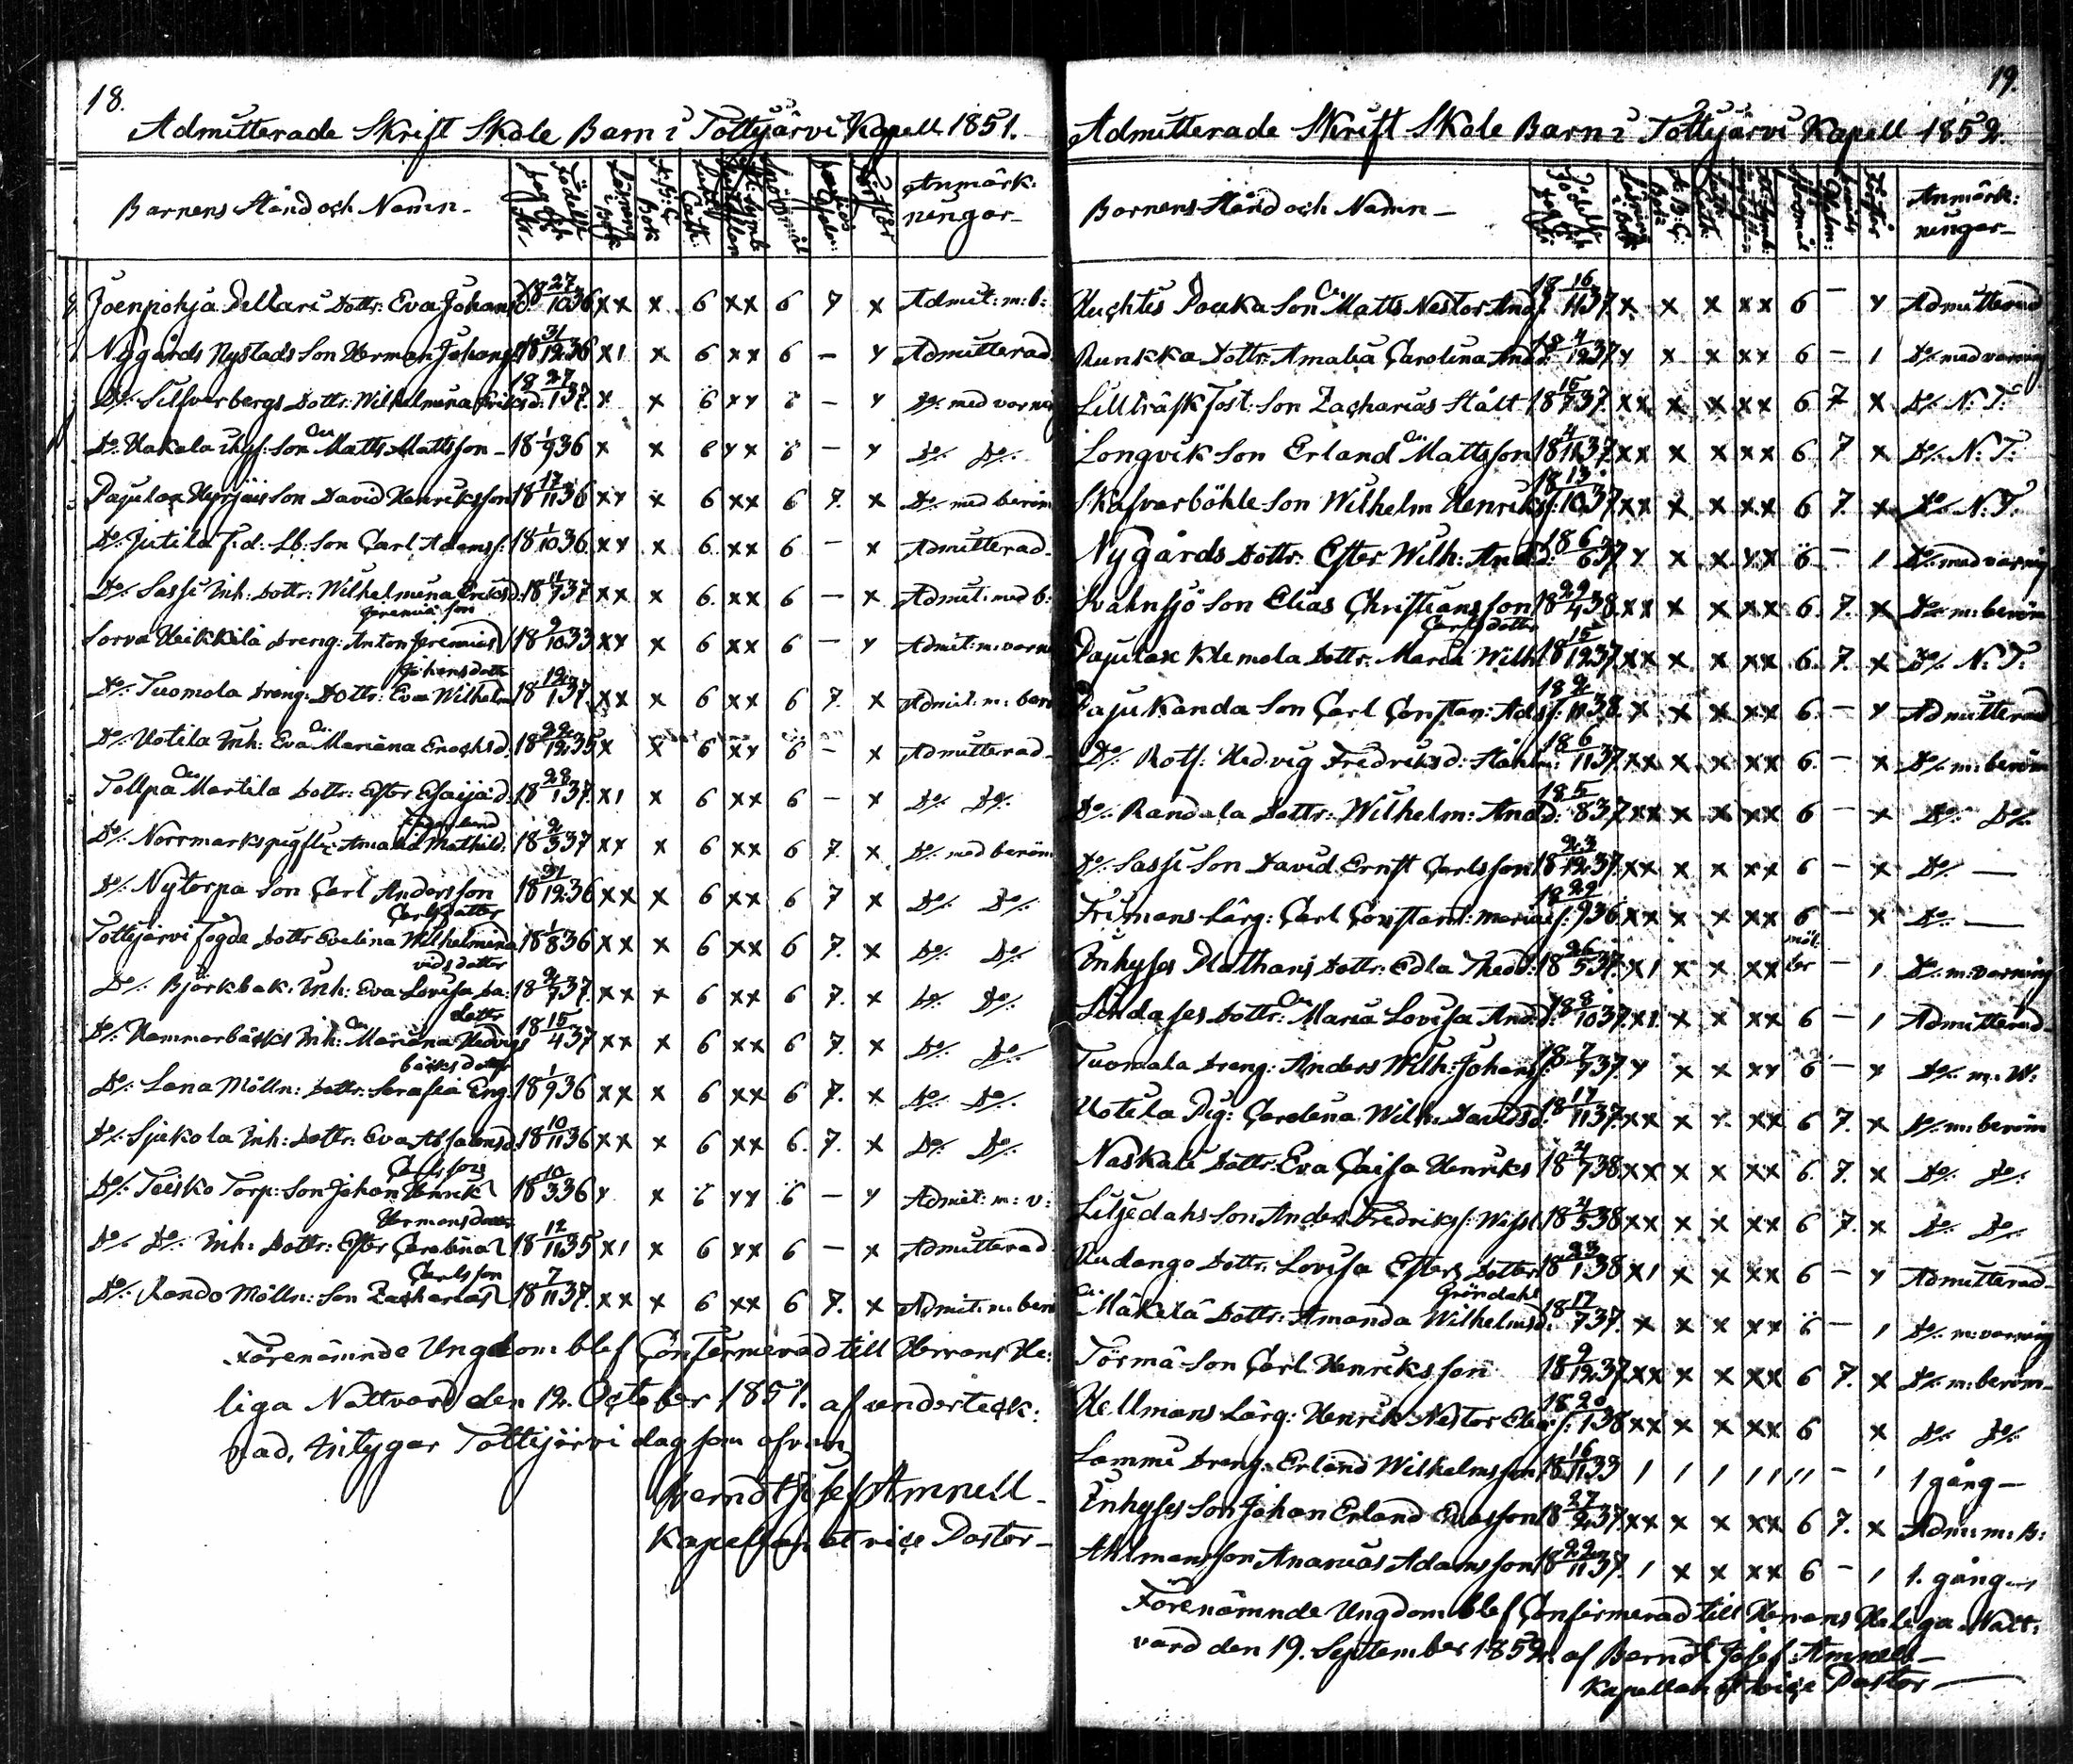 18.
Admitterade Skrift Skole Barn i Tottijärvi Kapell 1851.
Barnens Stånd och Namn
Födelse dag och år
Anmärk: ningar
Joenpohja Pellari Dottr: Eva Johansd: 18 27/10 36 xx x 6 xx 6 7 x Admit: m: b:
Nygårds Nystads Son Herman Johans 18 31/12 36 x1 x 6 xx 6 - x Admitterad
Do: Silfverbergs Dottr: Wilhelmina Eriksd: 18 27/1 37. x x 6 xx 6 - x Do: med varning
Do: Hakala Son Matts Mattsson 18 1/9 36 x x 6 xx 6 - x Do: Do:
Pajulax Son David Henriksson 18 17/11 36 xx x 6 xx 6 7. x Do: med beröm
Do: Jutila F:d: Lb: Son Carl Adams: 18 1/10 36 xx x 6 xx 6 - x Admitterad
Do: Sassi Inh: Dottr: Wilhelmina Eriksd: 18 11/7 37. xx x 6. xx 6 - x Admit: med b:
Sorva Heikkilä Dreng: Anton Jeremias son 18 9/10 33 xx x 6 xx 6 - x Admit: m: varn
Do: Tuomola Dreng: Dottr: Eva Wilhelm Johansdottr 18 12/1 37. xx x 6 xx 6 7. x Admit: m: ber
Do: Uotila Inh: Eva Mariana Enochsd. 18 22/12 35 x x 6 xx 6 - x Admitterad
Tollpa Martila Dottr: Ester Esaijæd: 18 28/1 37. x1 x 6 xx 6 - x Do: Do:
Do: Norrmarks Amalia Mathild. 18 2/3 37 xx x 6 xx 6 7. x Do: med beröm
Do: Nytorpa Son Carl Andersson 18 31/12 36 xx x 6 xx 6 7 x Do: Do:
Tottijärvi Fogde Dottr Evelina Wilhelmina Carlsdotter 18 1/8 36 xx x 6 xx 6 7. x Do: Do:
Do: Björkbak: Inh: Eva Lovisa Da: vidsdotter 18 2/7 37. xx x 6 xx 6 7. x Do: Do:
Do: Hammarbäcks Inh: Mariana Hedvig dottr 18 15/4 37 xx x 6 xx 6 7. x Do: Do:
Do: Lana Mölln: Dottr: Serafia Eng: bäcksdottr 18 1/9 36 xx x 6 xx 6 7. x Do: Do:
Do: Sjukola Inh: Dottr: Eva Absalonsd 18 10/11 36 xx x 6 xx 6. 7. x Do: Do:
Do: Teisko Torp: Son Johan Henrik Carlsson 18 10/3 36 x x 6 xx 6 - x Admit: m: v:
Do: Do: Inh: Dottr: Ester Carolina Hermansdotter 18 12/11 35 x1 x 6 xx 6 - x Admitterad
Do: Rando Mölln: Son Zacharias Carlsson 18 7/11 37. xx x 6 xx 6 7. x Admit: m: ber
Förenämnde Ungdom blef Confirmerad till Herrans He:
liga Nattvard den 12. October 1851. af underteck:
nad, intygar Tottijärvi dag som ofvan
Berndt Josef Amnell
Kapellan et vice Pastor
19.
Admitterade Skrift Skole Barn i Tottijärvi Kapell 1852.
Barnens Stånd och Namn
Anmärk: ningar
Huchtis Pouka Son Matts Nestor And: 18 16/11 37 x x x xx 6 - x Admitterad
Runkka Dottr: Amalia Carolina And: 18 4/12 37 x x x xx 6 - 1 Do: med varning
Lillträsk Tost: Son Zacharias Stålt 18 15/7 37. xx x x xx 6 7. x Do: N: T:
Longvik Son Erland Mattsson 18 4/11 37 xx x x xx 6 7. x Do: N: T:
Skafvarböhle Son Wilhelm Henriks: 18 13/10 37 xx x x xx 6 7. x Do: N: T.
Nygårds Dottr: Ester Wilh: And: 18 6/6 37 x x x xx 6 - 1 Do: med varning
Svahnsjö Son Elias Christiansson 18 29/4 38. xx x x xx 6. 7. x Do: m: beröm
Pajulax Klemola Dottr: Maria Wilh: Carlsdotter 18 15/12 37. xx x x xx 6. 7. x Do: N: T:
Pajukanda Son Carl Constan: Ads: 18 2/1 38. x x x xx 6. - x Admitterad
Do: Rotf: Hedvig Fredriksd: 18 6/11 37. xx x x xx 6. - x Do: m: beröm
Do: Randala Dottr: Wilhelm: And: 18 5/8 37 xx x x xx 6 - x Do: Do:
Do: Sassi Son David Ernst Carlsson 18 23/12 37. xx x x xx 6 - x Do:
Frimans Lärg: Carl Constant: Marias: 18 29/9 36 xx x x xx 6 - x Do:
Inhyses Nathans Dottr: Edla Theod: 18 26/5 37. x1 x x xx - 1 Do: m: varning
Lindases Dottr: Maria Lovisa And: 18 8/10 37. x1. x x xx 6 - 1 Admitterad
Tuomala Dreng: Anders Wilh: Johans: 18 7/7 37. x x x xx 6 - x Do: m: W:
Uotila Pig: Carolina Wilh: Davidsd: 18 17/11 37. xx x x xx 6 7. x Do: m: beröm
Naskali Dottr: Eva Caisa Henriks 18 4/7 38 xx x x xx 6. 7. x Do: Do:
Liljedahs Son Anders Fredriks: 18 4/5 38 xx x x xx 6 7. x Do: Do:
Rudango Dottr: Lovisa Esters Dotter 18 23/1 38 x1 x x xx 6 - x Admitterad
Mäkelä Dottr: Amanda Wilhelmsd: Gröndahl 18 17/7 37. x x x xx 6 - 1 Do: m: varning
Törmä Son Carl Henriksson 18 9/12 37 xx x x xx 6 7. x Do: m: beröm
Hellmans Lärg: Henrik Nestor 18 20/1 38 xx x x xx 6 x Do: Do:
Lammi Dreng: Erland Wilhelmsson 18 16/11 33 1 1 1 11 11 - 1 1 gång
Inhyses Son Johan Erland 18 27/2 37. xx x x xx 6 7. x Adm: m: B:
Ahlmans Son Ananias Adamsson 18 22/11 37. 1 x x xx 6 - 1 1. gång
Förenämnde Ungdom blef Confirmerad till Herrans Heliga Natt:
vard den 19. September 1852. af Berndt Josef Amnell
Kapellan et vice Pastor